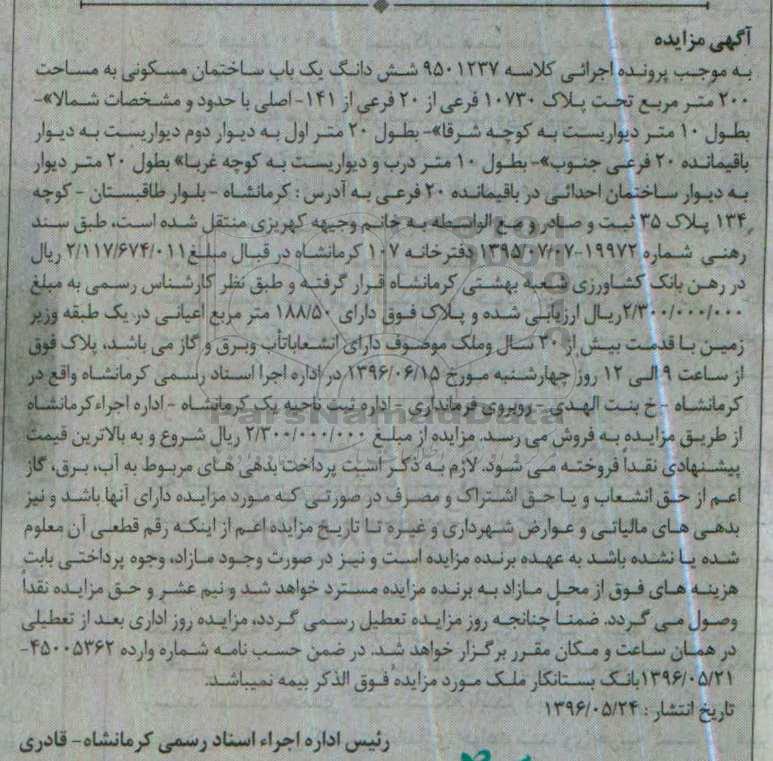 آگهی مزایده
به موجب پرونده اجرائی کلاسه ۹۵۰۱۲۳۷ شش دانگ یک باب ساختمان مسکونی به مساحت
۲۰۰ متر مربع تحت پلاک ۱۰۷۳۰ فرعی از ۲۰ فرعی از ۱۴۱- اصلی با حدود و مشخصات شمالا»-
بطول ۱۰ متر دیواریست به کوچه شرقا»- بطول ۲۰ متر اول به دیوار دوم دیواریست به دیوار
باقیمانده ۲۰ فرعی جنوب»- بطول ۱۰ متر درب و دیواریست به کوچه غربا» بطول ۲۰ متر دیوار
به دیوار ساختمان احداثی در باقیمانده ۲۰ فرعی به آدرس : کرمانشاه - بلوار طاقبستان - کوچه
۱۳۴ پلاک ۳۵ ثبت و صادر و مع الواسطه به خانم وجیهه کهریزی منتقل شده است، طبق سند
رهنی شماره ۱۹۹۷۲-۱۳۹۵/۰۷/۰۷ دفترخانه ۱۰۷ کرمانشاه در قبال مبلغ ۲/۱۱۷/۶۷۴/۰۱۱ ریال
در رهن بانک کشاورزی شعبه بهشتی کرمانشاه قرار گرفته و طبق نظر کارشناس رسمی به مبلغ
۲/۳۰۰/۰۰۰/۰۰۰ریال ارزیابی شده و پلاک فوق دارای ۱۸۸/۵۰ متر مربع اعیانی در یک طبقه وزیر
زمین با قدمت بیش از ۳۰ سال وملک موصوف دارای انشعاباتآب وبرق و گاز می باشد، پلاک فوق
از ساعت ۹ الی ۱۲ روز چهارشنبه مورخ ۱۳۹۶/۰۶/۱۵ در اداره اجرا اسناد رسمی کرمانشاه واقع در
کرمانشاه - خ بنت الهدی - روبروی فرمانداری - اداره ثبت ناحیه یک کرمانشاه - اداره اجراءکرمانشاه
از طریق مزایده به فروش می رسد. مزایده از مبلغ ۲/۳۰۰/۰۰۰/۰۰۰ ریال شروع و به بالاترین قیمت
پیشنهادی نقداً فروخته می شود. لازم به ذکر است پرداخت بدهی های مربوط به آب، برق، گاز
اعم از حق انشعاب و یا حق اشتراک و مصرف در صورتی که مورد مزایده دارای آنها باشد و نیز
بدهی های مالیاتی و عوارض شهرداری و غیره تا تاریخ مزایده اعم از اینکه رقم قطعی آن معلوم
شده یا نشده باشد به عهده برنده مزایده است و نیز در صورت وجود مازاد، وجوه پرداختی بابت
هزینه های فوق از محل مازاد به برنده مزایده مسترد خواهد شد و نیم عشر و حق مزایده نقداً
وصول می گردد. ضمناً چنانچه روز مزایده تعطیل رسمی گردد، مزایده روز اداری بعد از تعطیلی
در همان ساعت و مکان مقرر برگزار خواهد شد. در ضمن حسب نامه شماره وارده ۴۵۰۰۵۳۶۲-
۱۳۹۶/۰۵/۲۱بانک بستانکار ملک مورد مزایده فوق الذکر بیمه نمیباشد.
تاریخ انتشار : ۱۳۹۶/۰۵/۲۴
رئیس اداره اجراء اسناد رسمی کرمانشاه- قادری
ParsNamadData